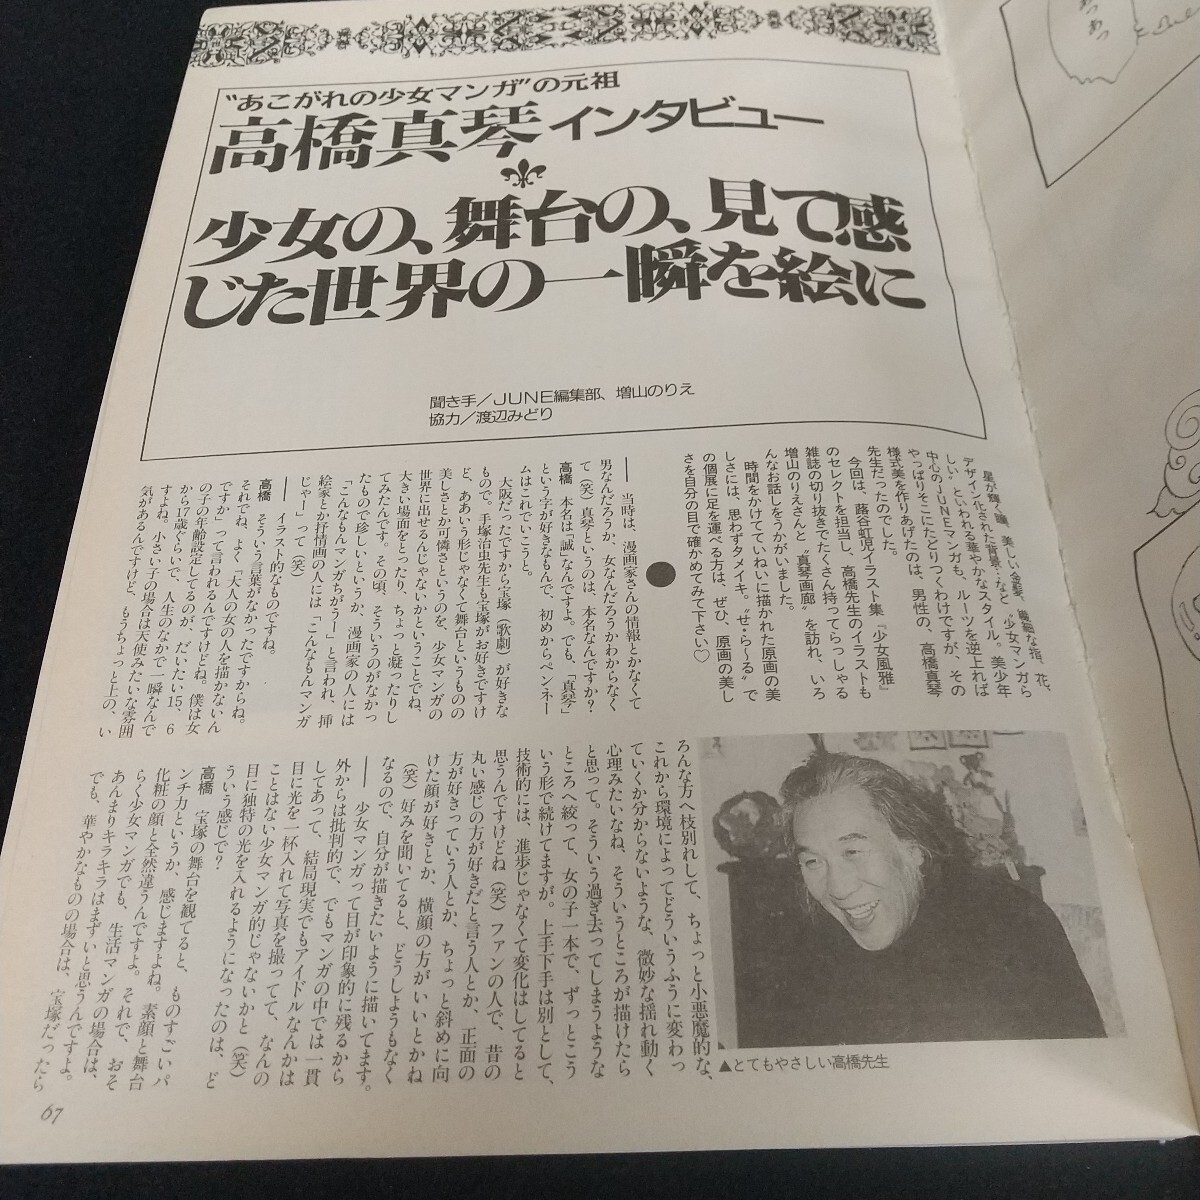 “あこがれの少女マンガ”の元祖
高橋真琴インタビュー
少女の、舞台の、見て感
じた世界の一瞬を絵に
聞き手／JUNE編集部、増山のりえ
協力／渡辺みどり
星が輝く瞳、美しい金髪、繊細な指、花、
デザイン化された背景…など〝少女マンガら
しい〟といわれる華やかなスタイル。美少年
中心のJUNEマンガも、ルーツを逆上れば
やっぱりそこにたどりつくわけですが、その
様式美を作りあげたのは、男性の、高橋真琴
先生だったのでした。
今回は、蕗谷虹児イラスト集『少女風雅』
のセレクトを担当し、高橋先生のイラストも
雑誌の切り抜きでたくさん持ってらっしゃる
増山のりえさんと〝真琴画廊〟を訪れ、いろ
んなお話しをうかがいました。
時間をかけてていねいに描かれた原画の美
しさには、思わずタメイキ。〝せ・ら〜る〟で
の個展に足を運べる方は、ぜひ、原画の美し
さを自分の目で確かめてみて下さい♡
●
―― 当時は、漫画家さんの情報とかなくて
男なんだろうか、女なんだろうかわからなく
て（笑）真琴というのは、本名なんですか？
高橋　本名は「誠」なんですよ。でも、「真琴」
という字が好きなもんで、初めからペンネー
ムはこれでいこうと。
大阪だったですから宝塚（歌劇）が好きな
もので。手塚治虫先生も宝塚がお好きですけ
ど、ああいう形じゃなくて舞台というものの
美しさとか可憐さというのを、少女マンガの
世界に出せるんじゃないかということでね、
大きい場面をとったり、ちょっと凝ったりし
てみたんです。その頃、そういうのがなかっ
たもので珍しいというか、漫画家の人には
「こんなもんマンガちがうー」と言われ、挿
絵家とか抒情画の人には「こんなもんマンガ
じゃー」って（笑）
―― イラスト的なものですね。
高橋　そういう言葉がなかったですからね。
それでね、よく「大人の女の人を描かないん
ですか」って言われるんですけどね。僕は女
の子の年齢設定してるのが、だいたい15、6
から17歳ぐらいで、人生のなかで一瞬なんで
すよね。小さい子の場合は天使みたいな雰囲
気があるんですけど、もうちょっと上の、い
ろんな方へ枝別れして、ちょっと小悪魔的な、
これから環境によってどういうふうに変わっ
ていくか分からないような、微妙な揺れ動く
心理みたいなね、そういうところが描けたら
と思って。そういう過ぎ去ってしまうような
ところへ絞って、女の子一本で、ずっとこう
いう形で続けてますが。上手下手は別として、
技術的には、進歩じゃなくて変化はしてると
思うんですけどね（笑）ファンの人で、昔の
丸い感じの方が好きだと言う人とか、正面の
方が好きっていう人とか、ちょっと斜めに向
けた顔が好きとか、横顔の方がいいとかね
（笑）好みを聞いてると、どうしようもなく
なるので、自分が描きたいように描いてます。
―― 少女マンガって目が印象的に残るから
外からは批判的で、でもマンガの中では一貫
してあって、結局現実でもアイドルなんかは
目に光を一杯入れて写真を撮ってて、なんの
ことはない少女マンガ的じゃないかと（笑）
目に独特の光を入れるようになったのは、ど
ういう感じで？
高橋　宝塚の舞台を観てると、ものすごいパ
ンチ力というか、感じますよね。素顔と舞台
化粧の顔と全然違うんですよ。それで、おそ
らく少女マンガでも、生活マンガの場合は、
あんまりキラキラはまずいと思うんですよ。
でも、華やかなものの場合は、宝塚だったら
▲とてもやさしい高橋先生
67